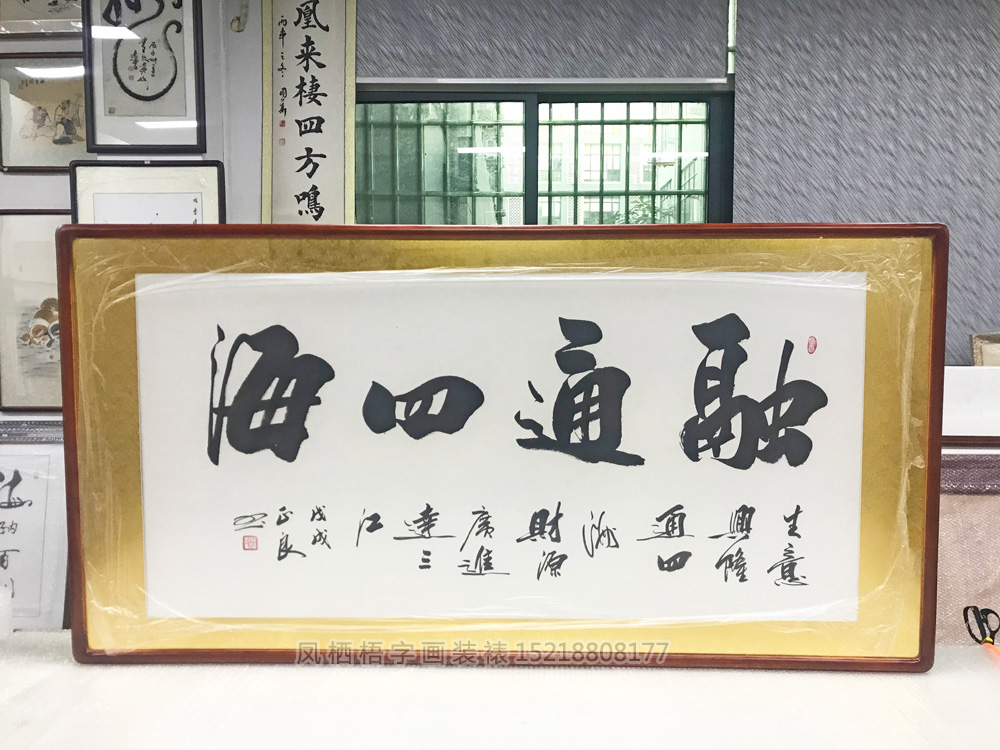 凰来棲四方鳴
丙申之冬
融通四海
生意
興隆
通四
海
財源
廣進
達三
江
戊戌
正良
凤栖梧字画装裱15218808177